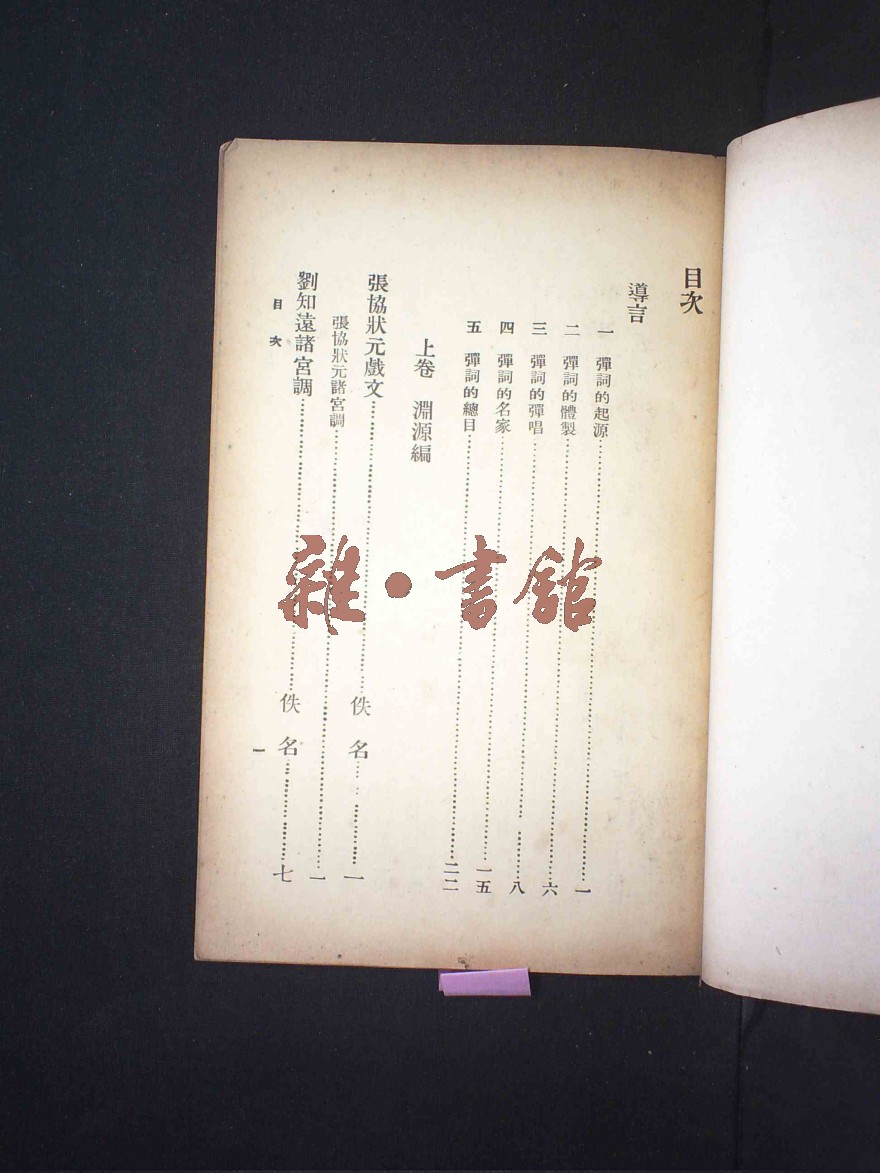 目次
導言
一 彈詞的起源……一
二 彈詞的體製……六
三 彈詞的彈唱……八
四 彈詞的名家……一五
五 彈詞的總目……二二
上卷 淵源編
張協狀元戲文……佚名……一
張協狀元諸宮調……一
劉知遠諸宮調……佚名……七
目次
一
雜·書館